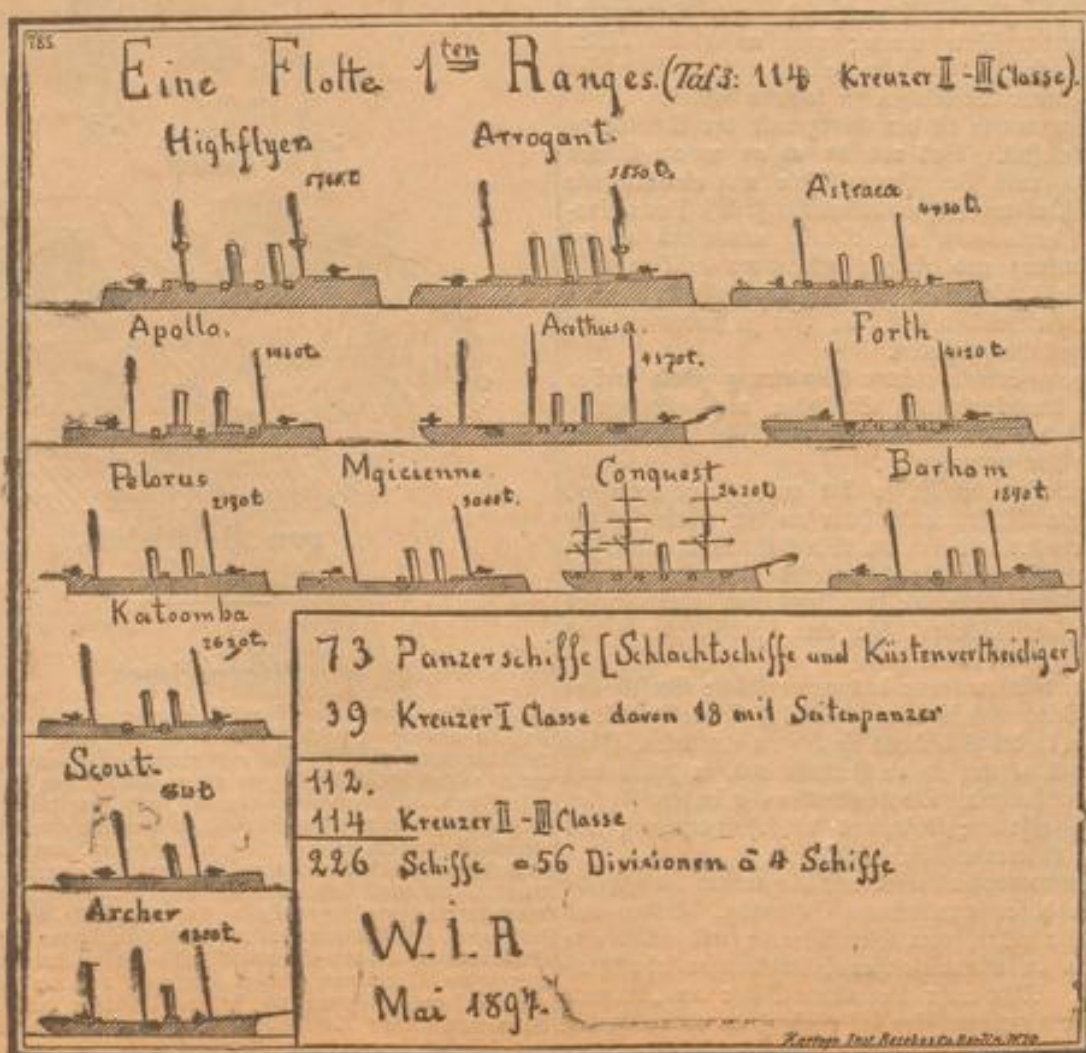 Eine Flotte 1ten Ranges. (Taf 3: 114 Kreuzer II-III Classe).
Highflyer
Arrogant.
Astraea
Apollo.
Arethusa.
4170t.
Forth
4120t
Pelorus
2130t
Mgicienne
3000t.
Conquest
2420t
Barham
1890t.
Katoomba
2630t.
Scout
Archer
73 Panzerschiffe [Schlachtschiffe und Küstenvertheidiger]
39 Kreuzer I Classe davon 18 mit Seitenpanzer
112.
114 Kreuzer II-III Classe
226 Schiffe = 56 Divisionen à 4 Schiffe
W. I. R
Mai 1897.